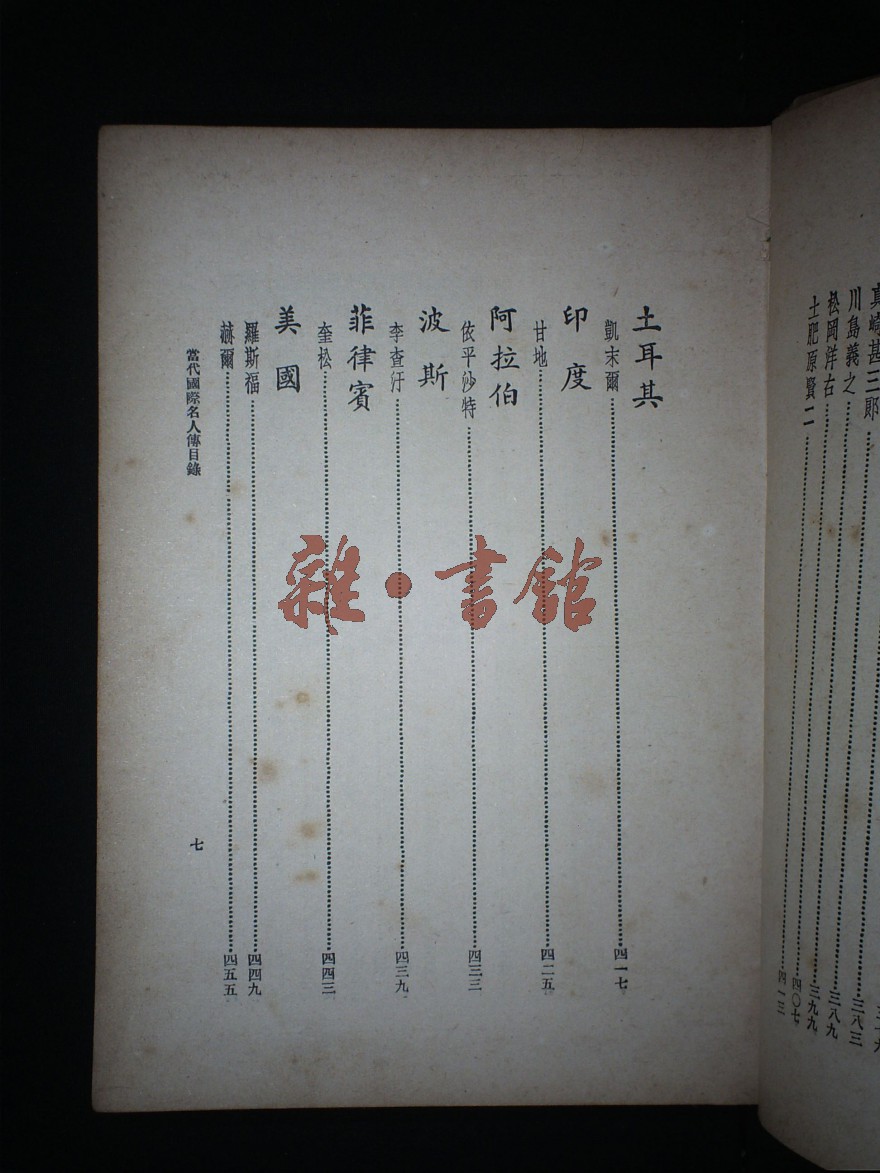 真崎甚三郎
川島義之 三八三
松岡洋右 三八九
三九九
土肥原賢二
四〇七
四一三
土耳其
凱末爾 四一七
印度
甘地 四二五
阿拉伯
依平沙特 四三三
波斯
李查汗 四三九
菲律賓
奎松 四四三
美國
羅斯福 四四九
赫爾 四五五
當代國際名人傳目錄
七
雜·書館